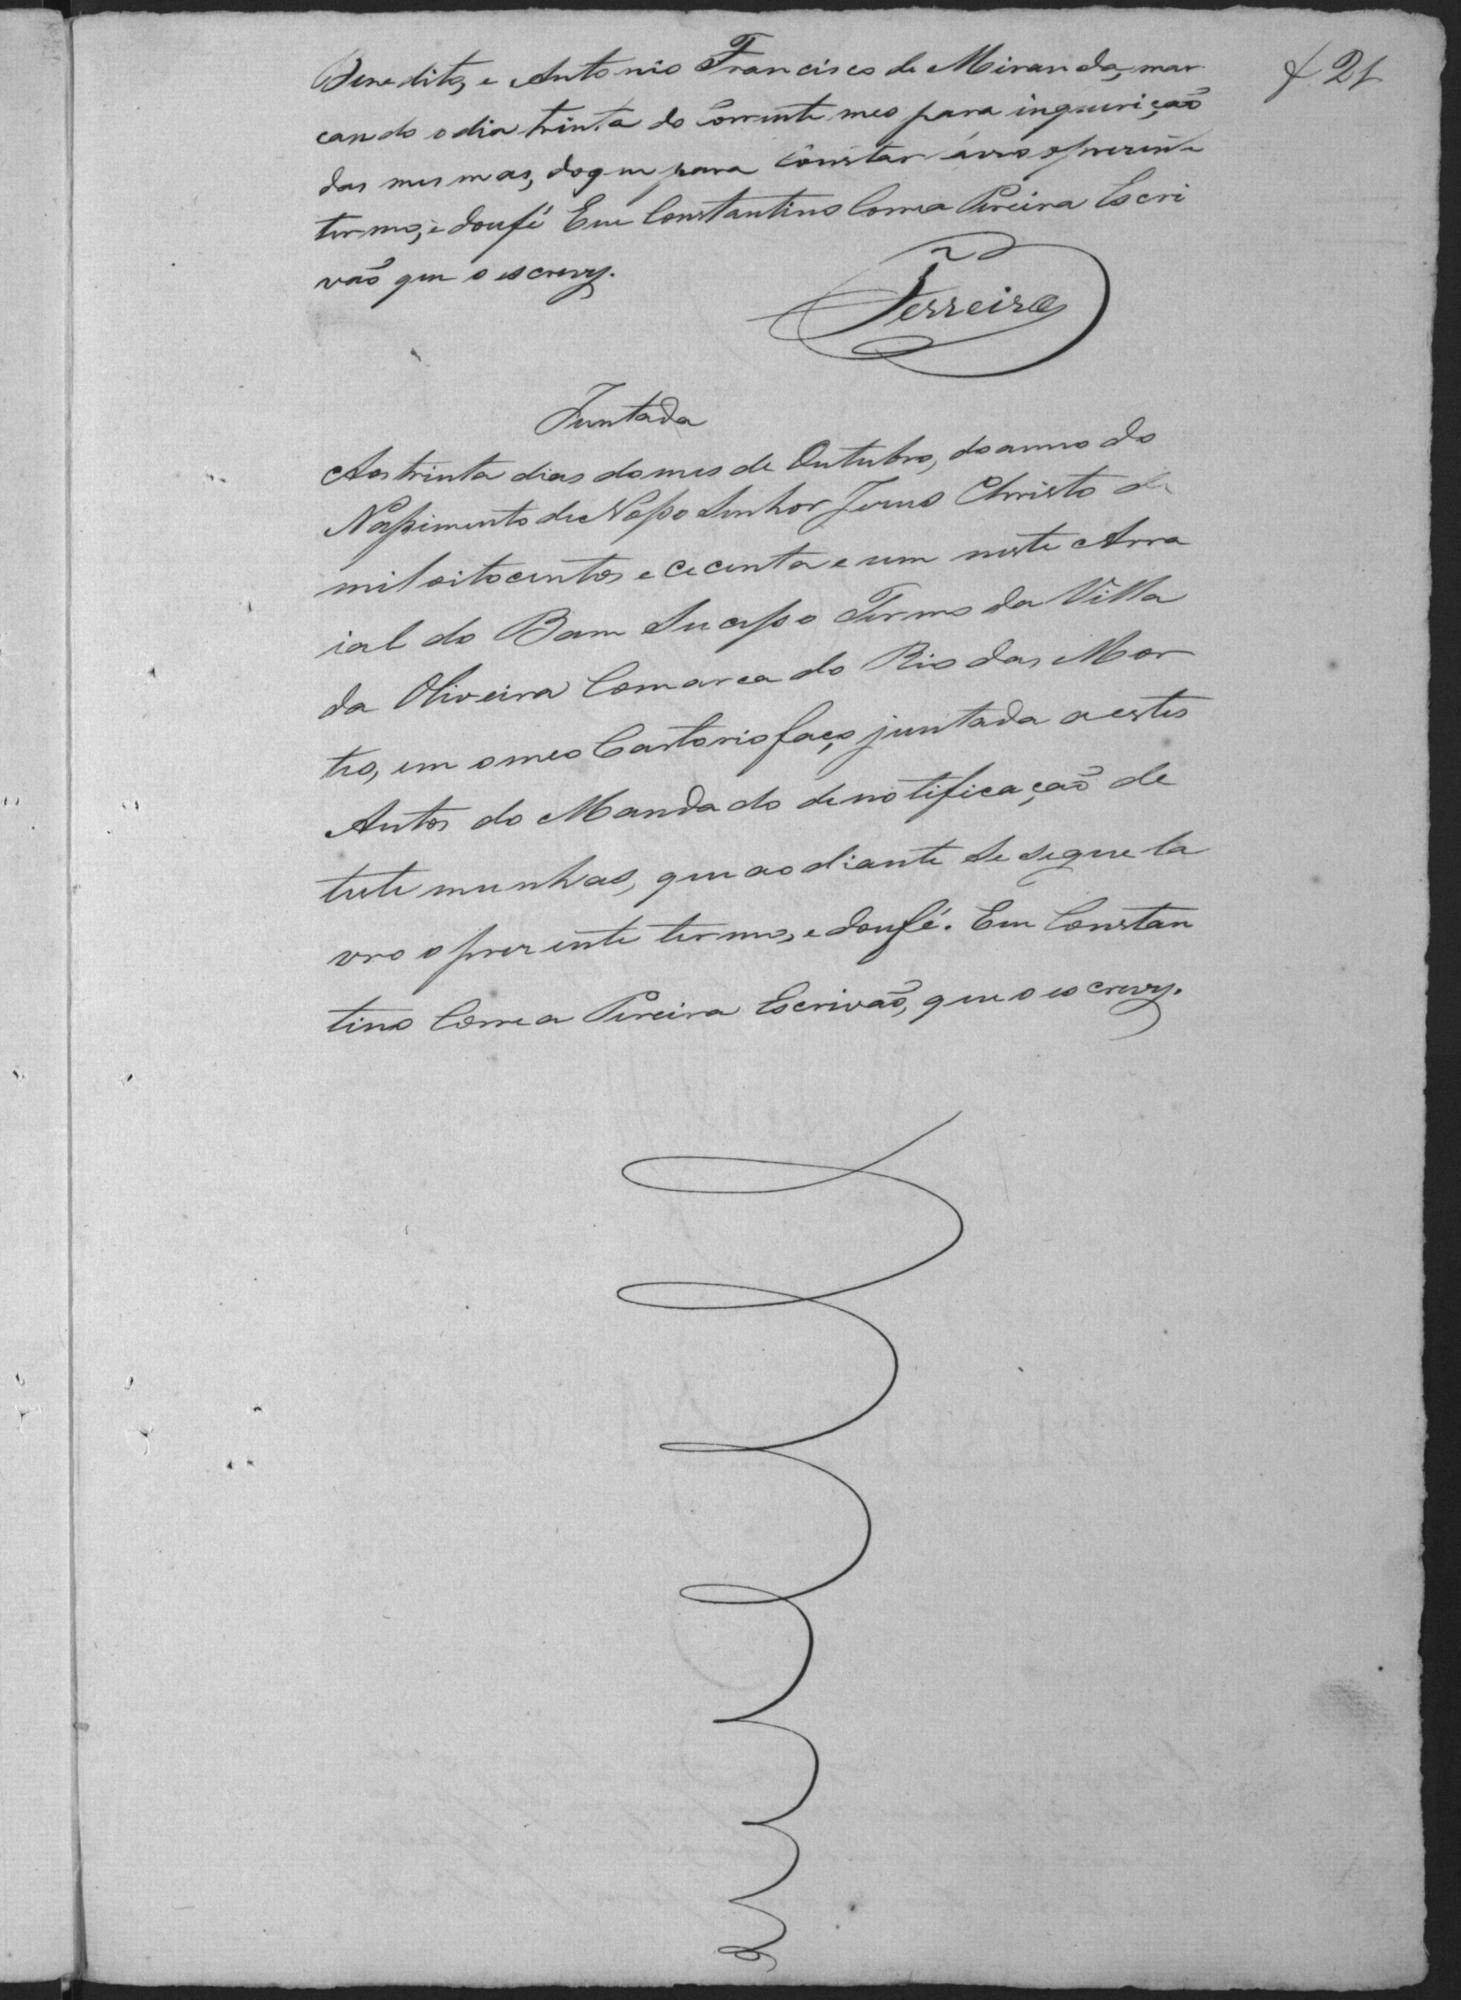 f 21
Benedito, e Antonio Francisco de Miranda, mar
cando o dia trinta do Corrente mes para inquirição
das mesmas, do que para Constar lavro o prezente
termo, e dou fé Eu Constantino Correa Pereira Escri
vaõ que o escrevy.
Ferreira
Juntada
Aos trinta dias do mes de Outubro, do anno do
Nassimento de Nosso Senhor Jezus Christo de
mil oito centos e cecenta e um neste Arra
ial do Bom Sucesso Termo da Villa
da Oliveira Comarca do Rio das Mor
tes, em o meo Cartorio faço juntada a estes
Autos do Mandado de notificaçaõ de
testemunhas, que ao diante se segue la
vro o prezente termo, e dou fé. Eu Constan
tino Correa Pereira Escrivaõ, que o escrevy.